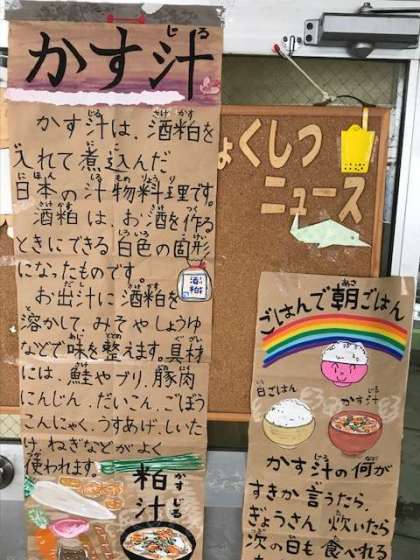 かす汁
かす汁は、酒粕を
入れて煮込んだ
日本の汁物料理です。
酒粕は、お酒を作る
ときにできる白色の固形
になったものです。
お出汁に酒粕を
溶かして、みそやしょうゆ
などで味を整えます。具材
には、鮭やブリ、豚肉
にんじん だいこん、ごぼう
こんにゃく、うすあげ、しいた
け、ねぎなどがよく
使われます。
酒粕
粕汁
ょくしつ
ニュース
ごはんで朝ごはん
白ごはん
かす汁
かす汁の何が
すきか言うたら、
ぎょうさん 炊いたら
次の日も食べれる